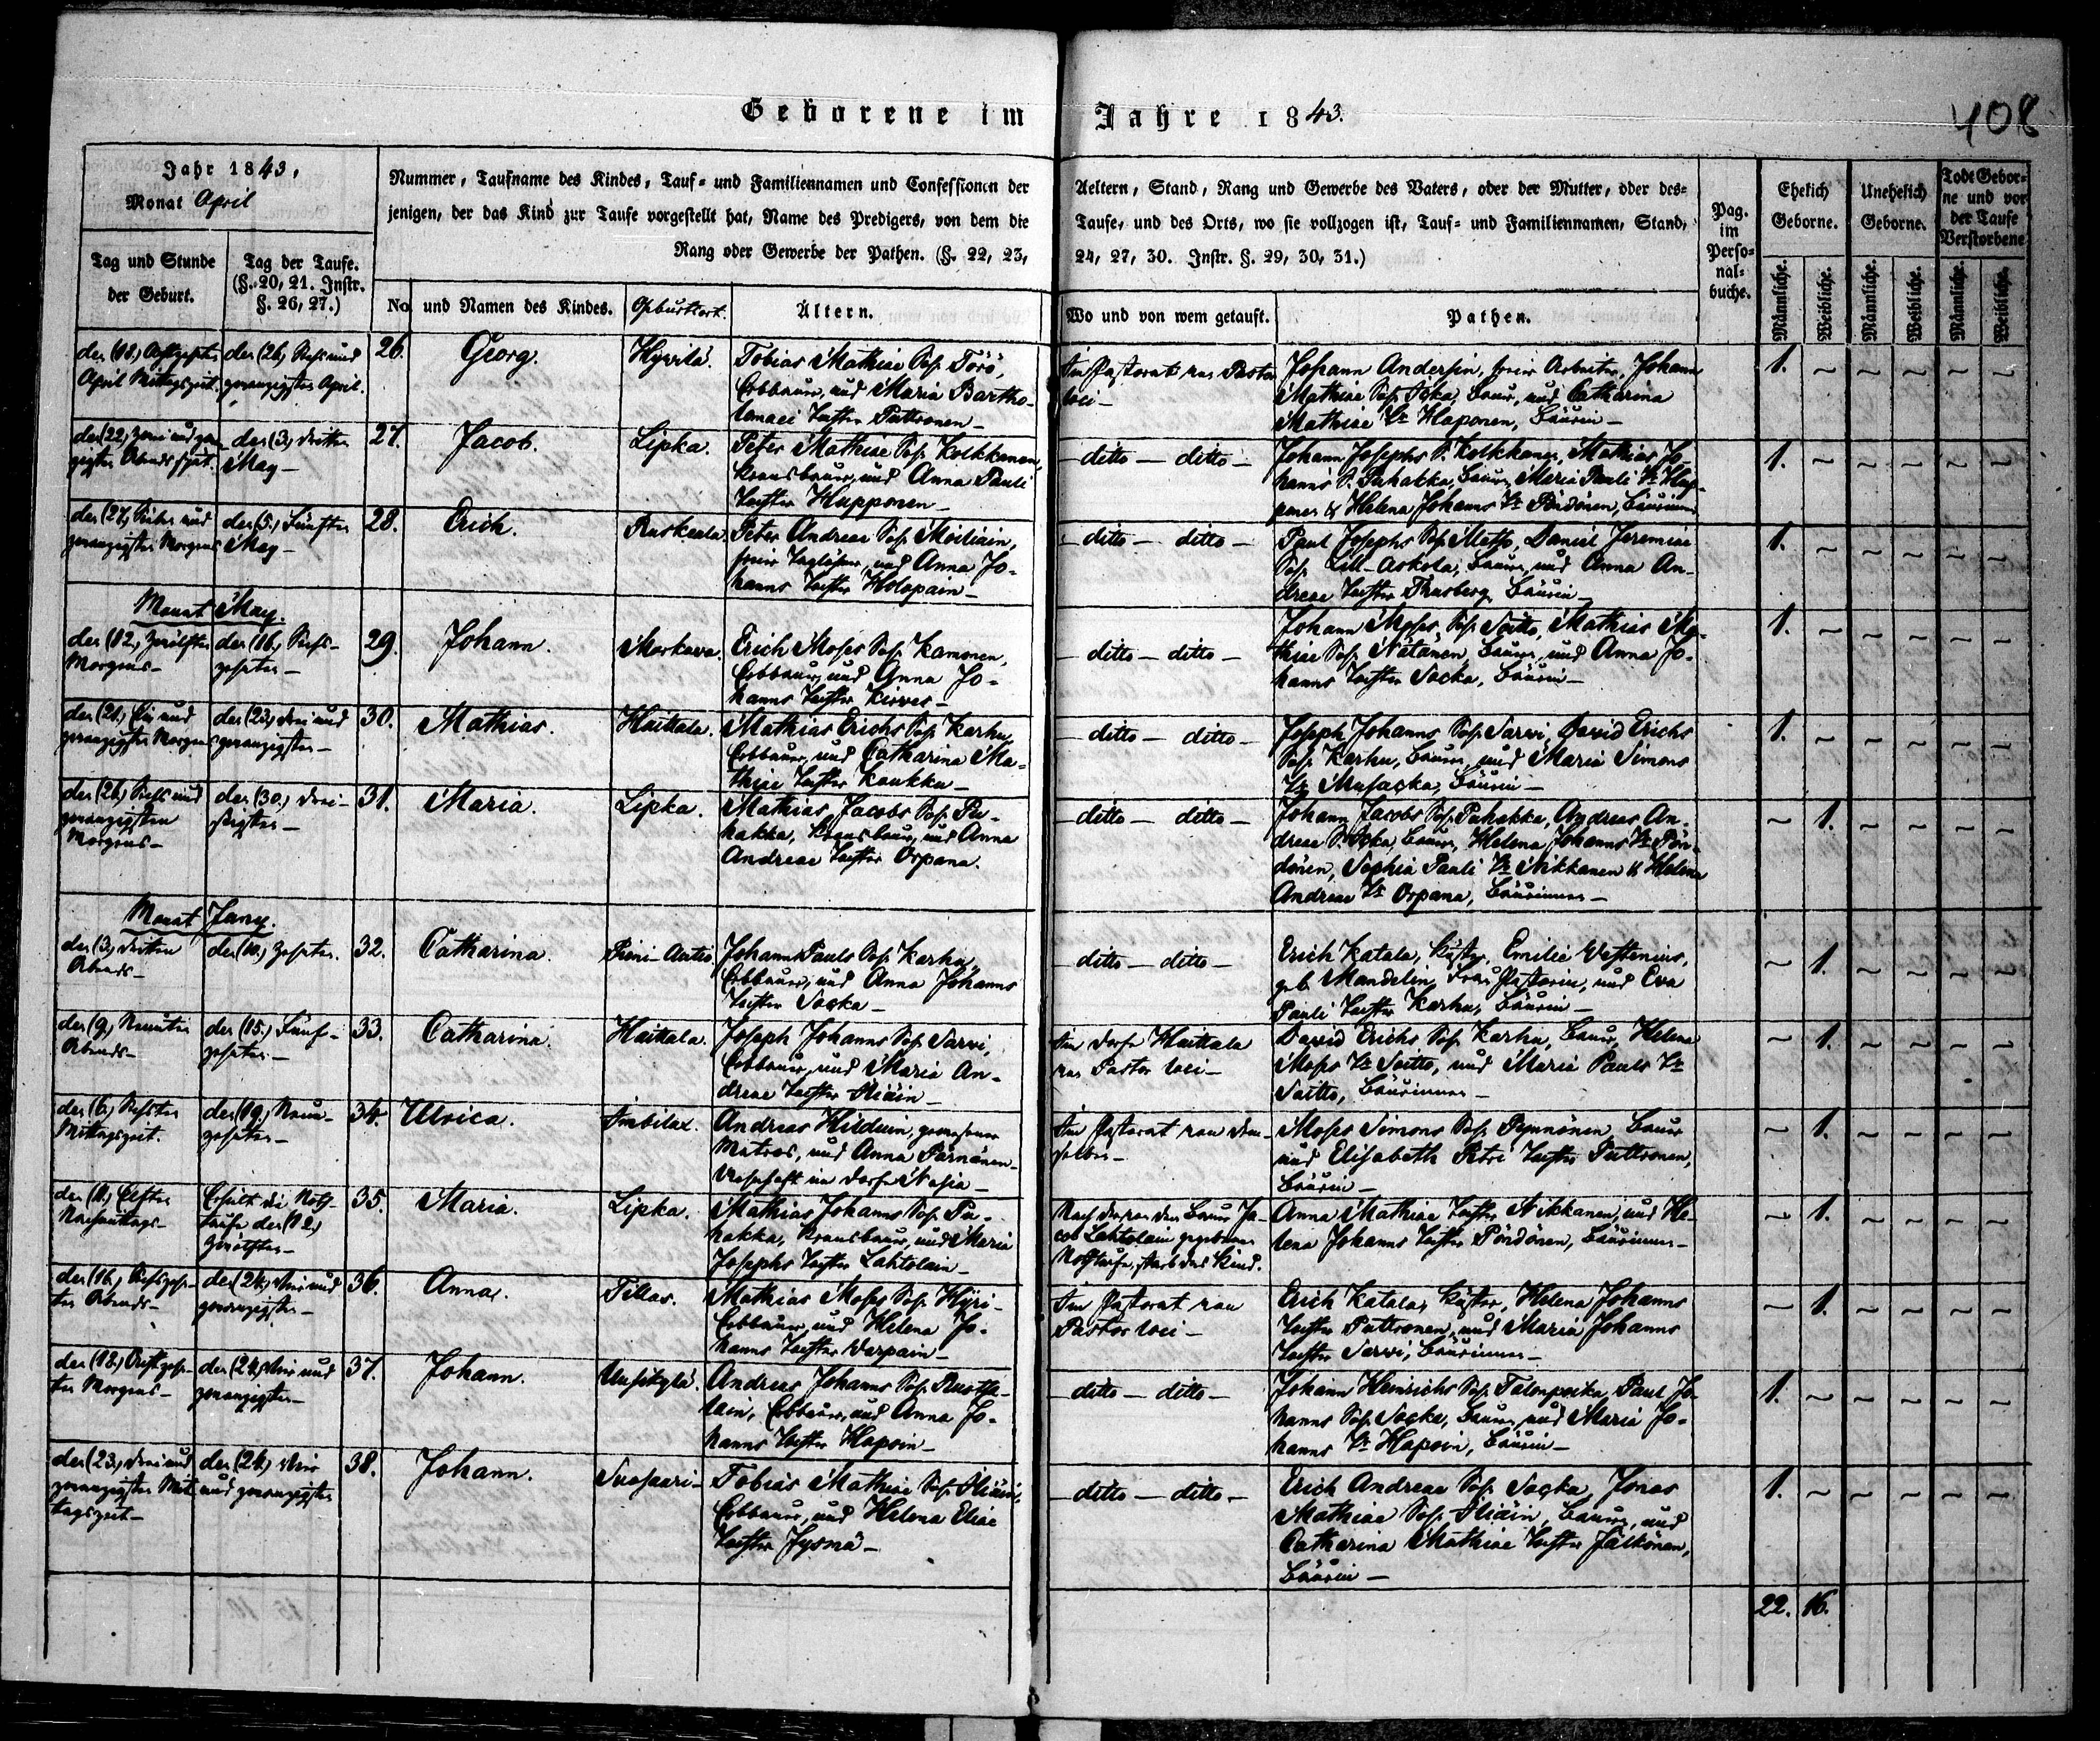 Geborene im Jahre 1843.
408
Jahr 1843,
Monat April
Nummer, Taufname des Kindes, Tauf- und Familiennamen und Confessionen der
jenigen, der das Kind zur Taufe vorgestellt hat, Name des Predigers, von dem die
Rang oder Gewerbe der Pathen. (§. 22, 23,
Aeltern, Stand, Rang und Gewerbe des Vaters, oder der Mutter, oder des-
Taufe, und des Orts, wo sie vollzogen ist, Tauf- und Familiennamen, Stand,
24, 27, 30. Instr. §. 29, 30, 31.)
Pag.
im
Perso-
nal-
buche.
Ehelich
Geborne.
Unehelich
Geborne.
Todt Gebor-
ne und vor
der Taufe
Verstorbene
Tag und Stunde
der Geburt.
Tag der Taufe.
(§. 20, 21. Instr.
§. 26, 27.)
No und Namen des Kindes.
Geburtsort.
Altern.
Wo und von wem getauft.
Pathen.
Männliche.
Weibliche.
Männliche.
Weibliche.
Männliche.
Weibliche.
den (18.) Achtzehnten
April Mittagszeit.
den (26.) Sechs und
zwanzigsten April.
26.
Georg.
Hyvilä.
Tobias Mathiae Sohn Törö,
Erbbauer, und Maria Bartho-
lomaei Tochter Puttonen—
Im Pastorat von Pastor
loci—
Johann Andersin, freier Arbeiter, Johann
Mathiae Sohn Bauer, und Catharina
Mathiae Tr Haponen, Bäurin—
1.
den (22.) Zwei und zwan-
zigsten Abends spät.
den (3.) dritten
May—
27.
Jacob.
Lipka.
Peter Mathiae Sohn Kolkkanen,
Kronsbauer, und Anna Pauli
Tochter Hupponen—
— ditto — ditto —
Johann Josephs S. Kolkkanen, Mathias Jo-
hanns S. Puhakka, Bauern, Maria Pauli Tr Hup-
ponen & Helena Johanns Tr Pöndönen, Bäurinnen
1.
den (27.) Sieben und
zwanzigsten Morgens
den (5.) Fünften
May—
28.
Erich.
Ruskeala.
Peter Andreae Sohn Moilain,
freier Taglöhner, und Anna Jo-
hanns Tochter Holopain—
— ditto — ditto —
Paul Josephs Sohn Matto, Daniel Jeremiae
Sohn Lill-Askola, Bauern, und Anna An-
dreae Tochter Thusberg, Bäurin—
1.
Monat May.
den (12.) Zwölften
Morgens—
den (16.) Sechs-
zehnten—
29.
Johann.
Markava.
Erich Moses Sohn Kamonen,
Erbbauer, und Anna Jo-
hanns Tochter Kirves—
— ditto — ditto —
Johann Moses Sohn Saitto, Mathias Ma-
thiae Sohn Nätänen, Bauern, und Anna Jo-
hanns Tochter Sacka, Bäurin—
1.
den (21.) Ein und
zwanzigsten Morgens
den (23.) drei und
zwanzigsten—
30.
Mathias.
Haikala.
Mathias Erichs Sohn Karhu,
Erbbauer, und Catharina Ma-
thiae Tochter Kaukku—
— ditto — ditto —
Joseph Johanns Sohn Sarvi, David Erichs
Sohn Karhu, Bauern, und Maria Simons
Tr Musacka, Bäurin—
1.
den (26.) Sechs und
zwanzigsten
Morgens—
den (30.) drei-
ssigsten—
31.
Maria.
Lipka.
Mathias Jacobs Sohn Pu-
hakka, Kronsbauer, und Anna
Andreae Tochter Orpana.
— ditto — ditto —
Johann Jacobs Sohn Puhakka, Andreas An-
dreae S. Bauern, Helena Johanns Tr Pön-
dönen, Sophia Pauli Tr Nikkanen & Helena
Andreae Tr Orpana, Bäurinnen—
1.
Monat Juny.
den (3.) dritten
Abends—
den (10.) Zehnten.
32.
Catharina.
Pieni-Autio.
Johann Pauls Sohn Karhu,
Erbbauer, und Anna Johanns
Tochter Sacka—
— ditto — ditto —
Erich Katala, Küster, Emilie Westenius,
geb. Mandelin, Frau Pastorin, und Eva
Pauli Tochter Karhu, Bäurin—
1.
den (9.) Neunten
Abends—
den (15.) Fünf-
zehnten—
33.
Catharina.
Haikala.
Joseph Johanns Sohn Sarvi,
Erbbauer, und Maria An-
dreae Tochter Hiäin—
Im Dorfe Haikala
von Pastor loci—
David Erichs Sohn Karhu, Bauer, Helena
Moses Tr Saitto, und Maria Pauls Tr
Saitto, Bäurinnen—
1.
den (6.) Sechsten
Mittagszeit.
den (19.) Neun-
zehnten—
34.
Ulrica.
Imbilax.
Andreas Hirduin, gewesener
Matros, und Anna Pärnänen—
im Dorfe
Im Pastorat von dem-
selben—
Moses Simons Sohn Pynnönen Bauer
und Elisabeth Petri Tochter Puttonen,
Bäurin—
1.
den (11.) Elften
Nachmittags—
Erhielt die Noth-
taufe den (12.)
Zwölften—
35.
Maria.
Lipka.
Mathias Johanns Sohn Pu-
hakka, Kronsbauer, und Maria
Josephs Tochter Lahtolain—
Nach der von dem Bauer Ja-
cob Lahtolain gegebenen
Nothtaufe, starb das Kind.
Anna Mathiae Tochter Nikkanen, und He-
lena Johanns Tochter Pöndönen, Bäurinnen—
1.
den (16.) Sechszehn-
ten Abends—
den (24.) Vier und
zwanzigsten—
36.
Anna.
Tillas.
Mathias Moses Sohn Hyri—
Erbbauer, und Helena Jo-
hanns Tochter Varpain—
Im Pastorat von
Pastor loci—
Erich Katala, Küster, Helena Johanns
Tochter Puttonen, und Maria Johanns
Tochter Sarvi, Bäurinnen—
1.
den (18.) Achtzehn-
ten Morgens—
den (24.) Vier und
zwanzigsten—
37.
Johann.
Uusikylä.
Andreas Johanns Sohn Ruotsa-
lain, Erbbauer, und Anna Jo-
hanns Tochter Hapoin—
— ditto — ditto —
Johann Heinrichs Sohn Talonpoika, Paul Jo-
hanns Sohn Sacka, Bauern, und Maria Jo-
hanns Tr Hapoin, Bäurin—
1.
den (23.) drei und
zwanzigsten Mit-
tagszeit—
den (24.) Vier
und zwanzigsten
38.
Johann.
Suosaari—
Tobias Mathiae Sohn Hiäin,
Erbbauer, und Helena Eliae
Tochter Jysmä—
— ditto — ditto —
Erich Andreae Sohn Sacka, Jonas
Mathiae Sohn Hiäin, Bauern, und
Catharina Mathiae Tochter Jälkönen,
Bäurin—
1.
22. 16.